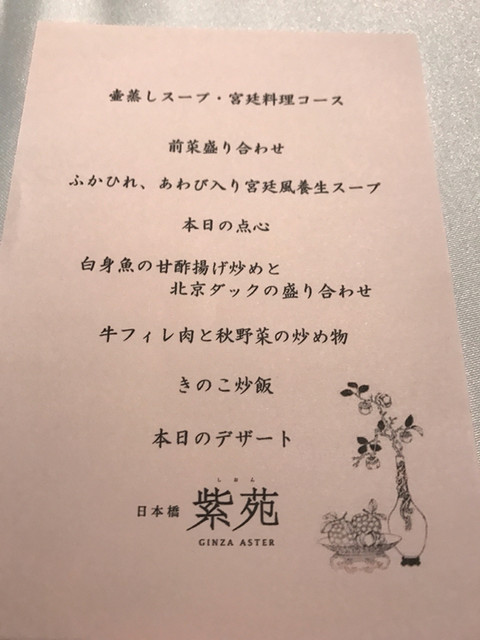 壷蒸しスープ・宮廷料理コース
前菜盛り合わせ
ふかひれ、あわび入り宮廷風養生スープ
本日の点心
白身魚の甘酢揚げ炒めと
北京ダックの盛り合わせ
牛フィレ肉と秋野菜の炒め物
きのこ炒飯
本日のデザート
しおん
日本橋 紫苑
GINZA ASTER